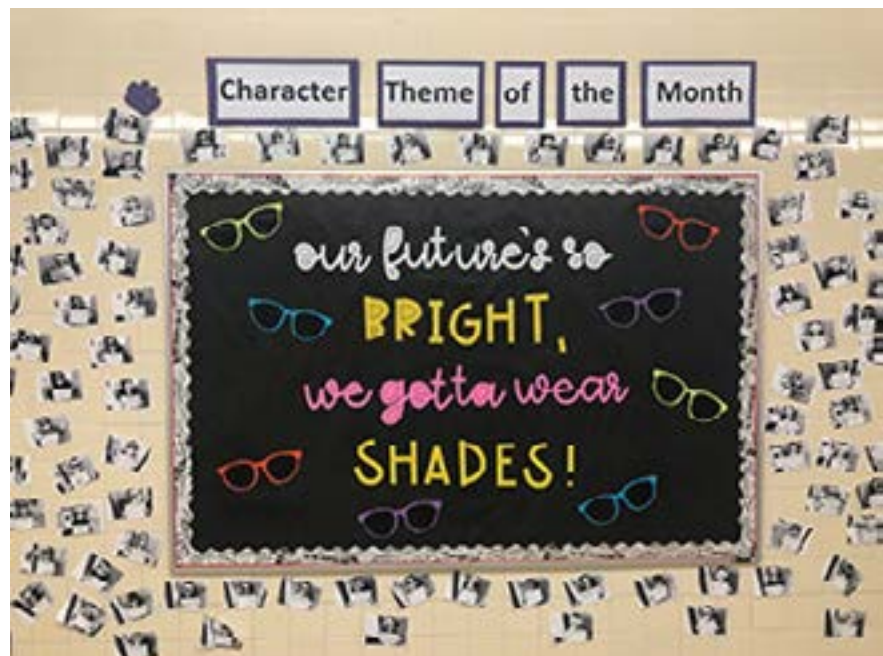 Character Theme of the Month
our future's so
BRIGHT,
we gotta wear
SHADES!